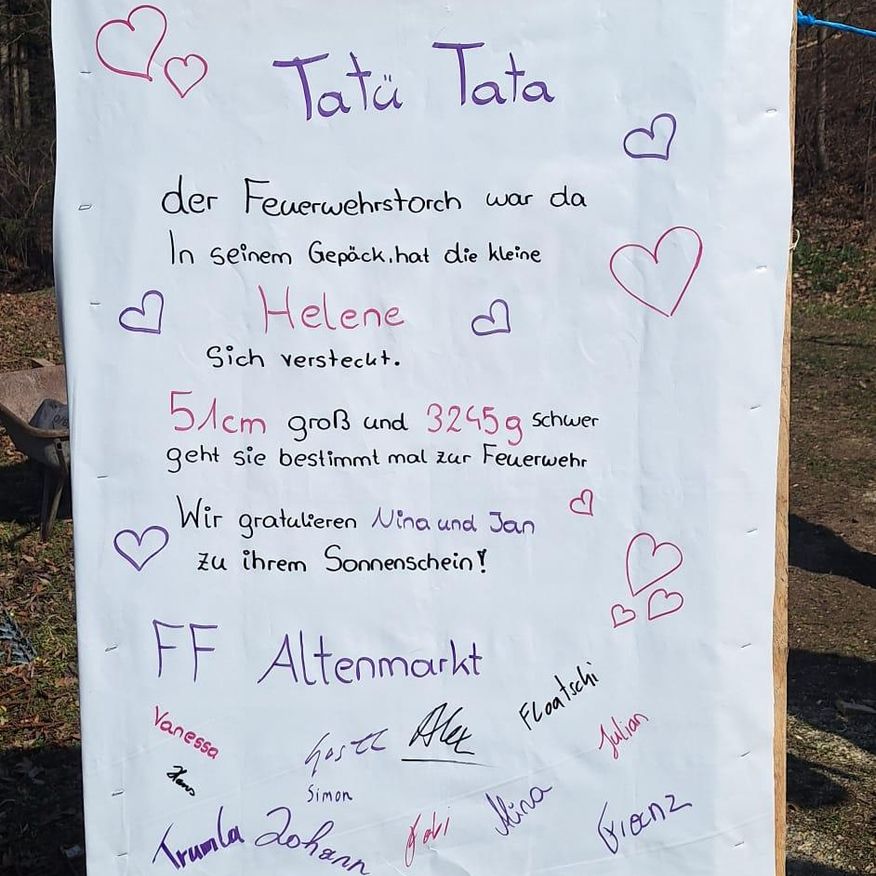 Tatü Tata
der Feuerwehrstorch war da
In seinem Gepäck, hat die kleine
Helene
Sich versteckt.
51cm groß und 3245g schwer
geht sie bestimmt mal zur Feuerwehr
Wir gratulieren Nina und Jan
zu ihrem Sonnenschein!
FF Altenmarkt
Vanessa
Alex
Floatschi
Julian
Simon
Trumla
Johann
Nina
Franz